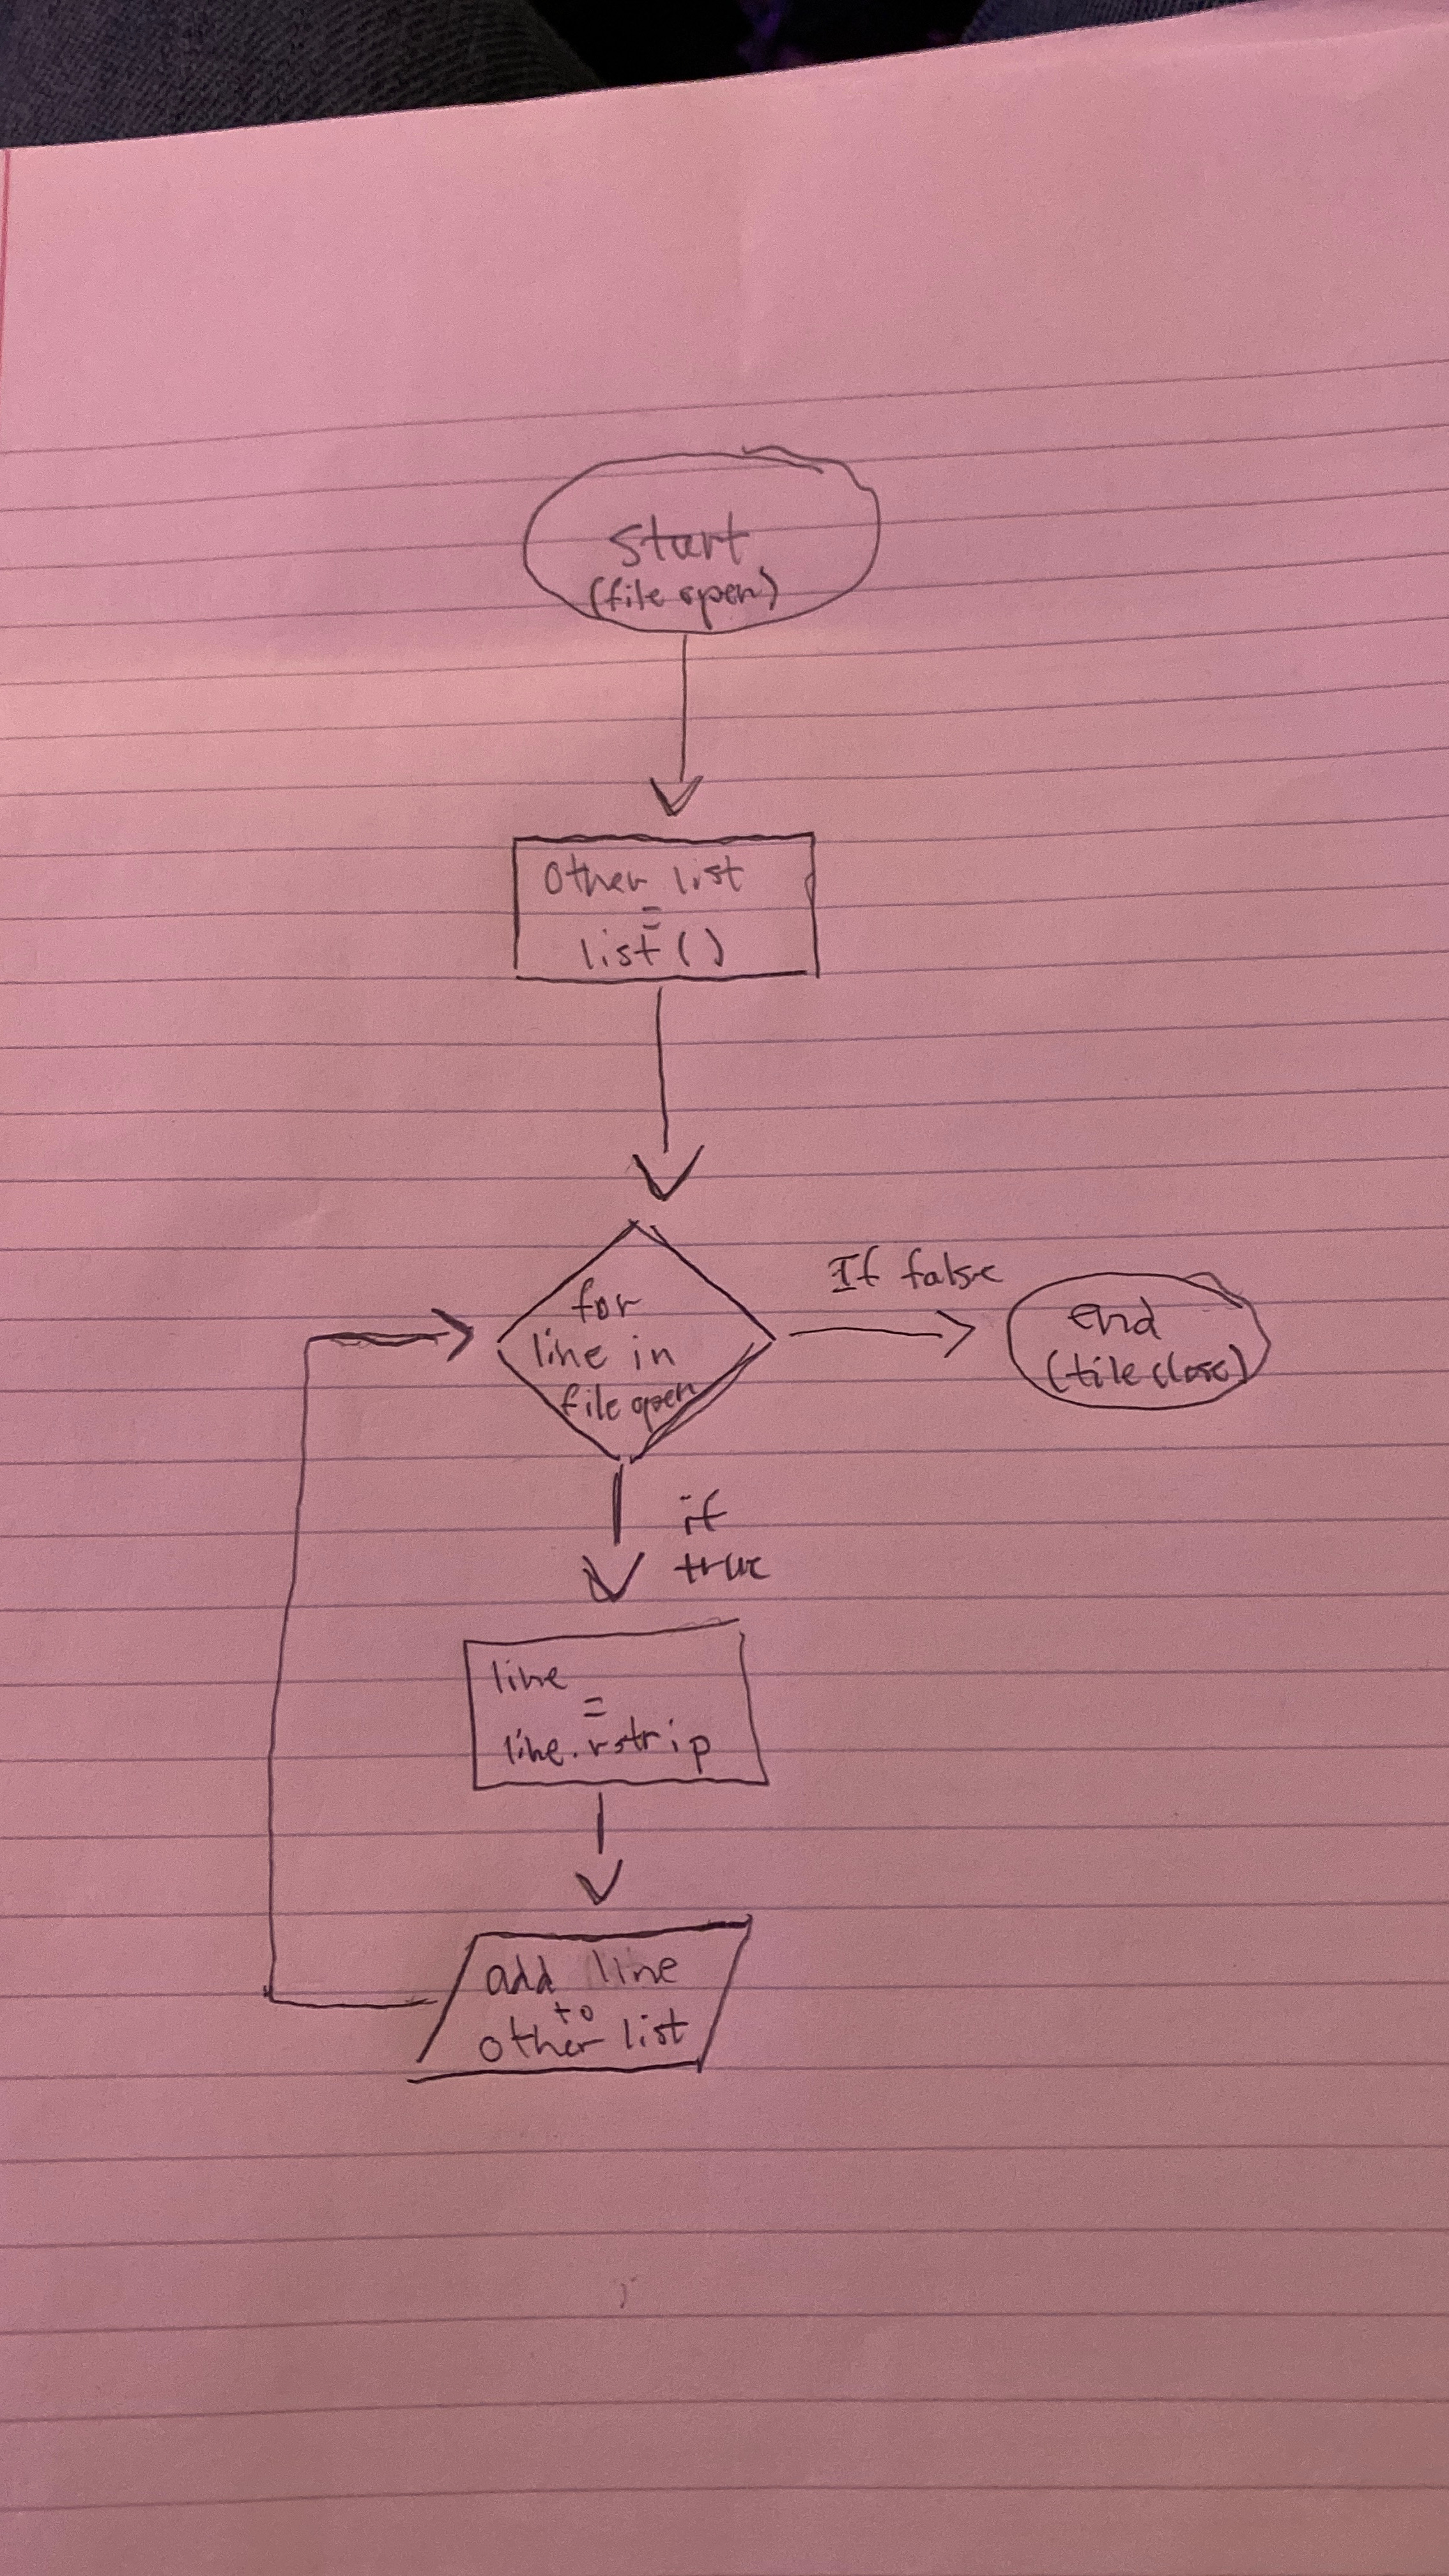 start
(file open)
other list
=
list ()
for
line in
file open
If false
end
(file close)
if
true
line
=
line.rstrip
add line
to
other list